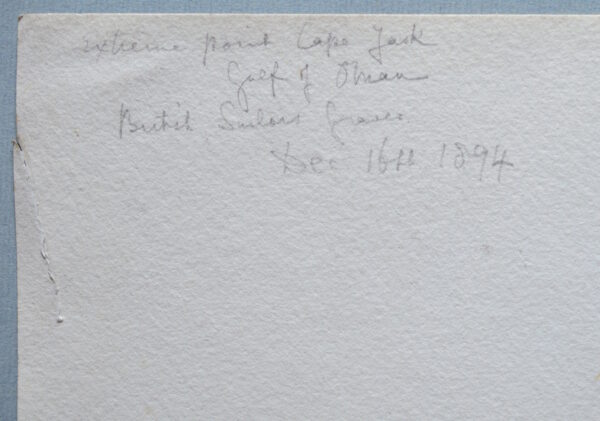 extreme point Cape Jask
Gulf of Oman
British Sailors Graves
Dec 16th 1894